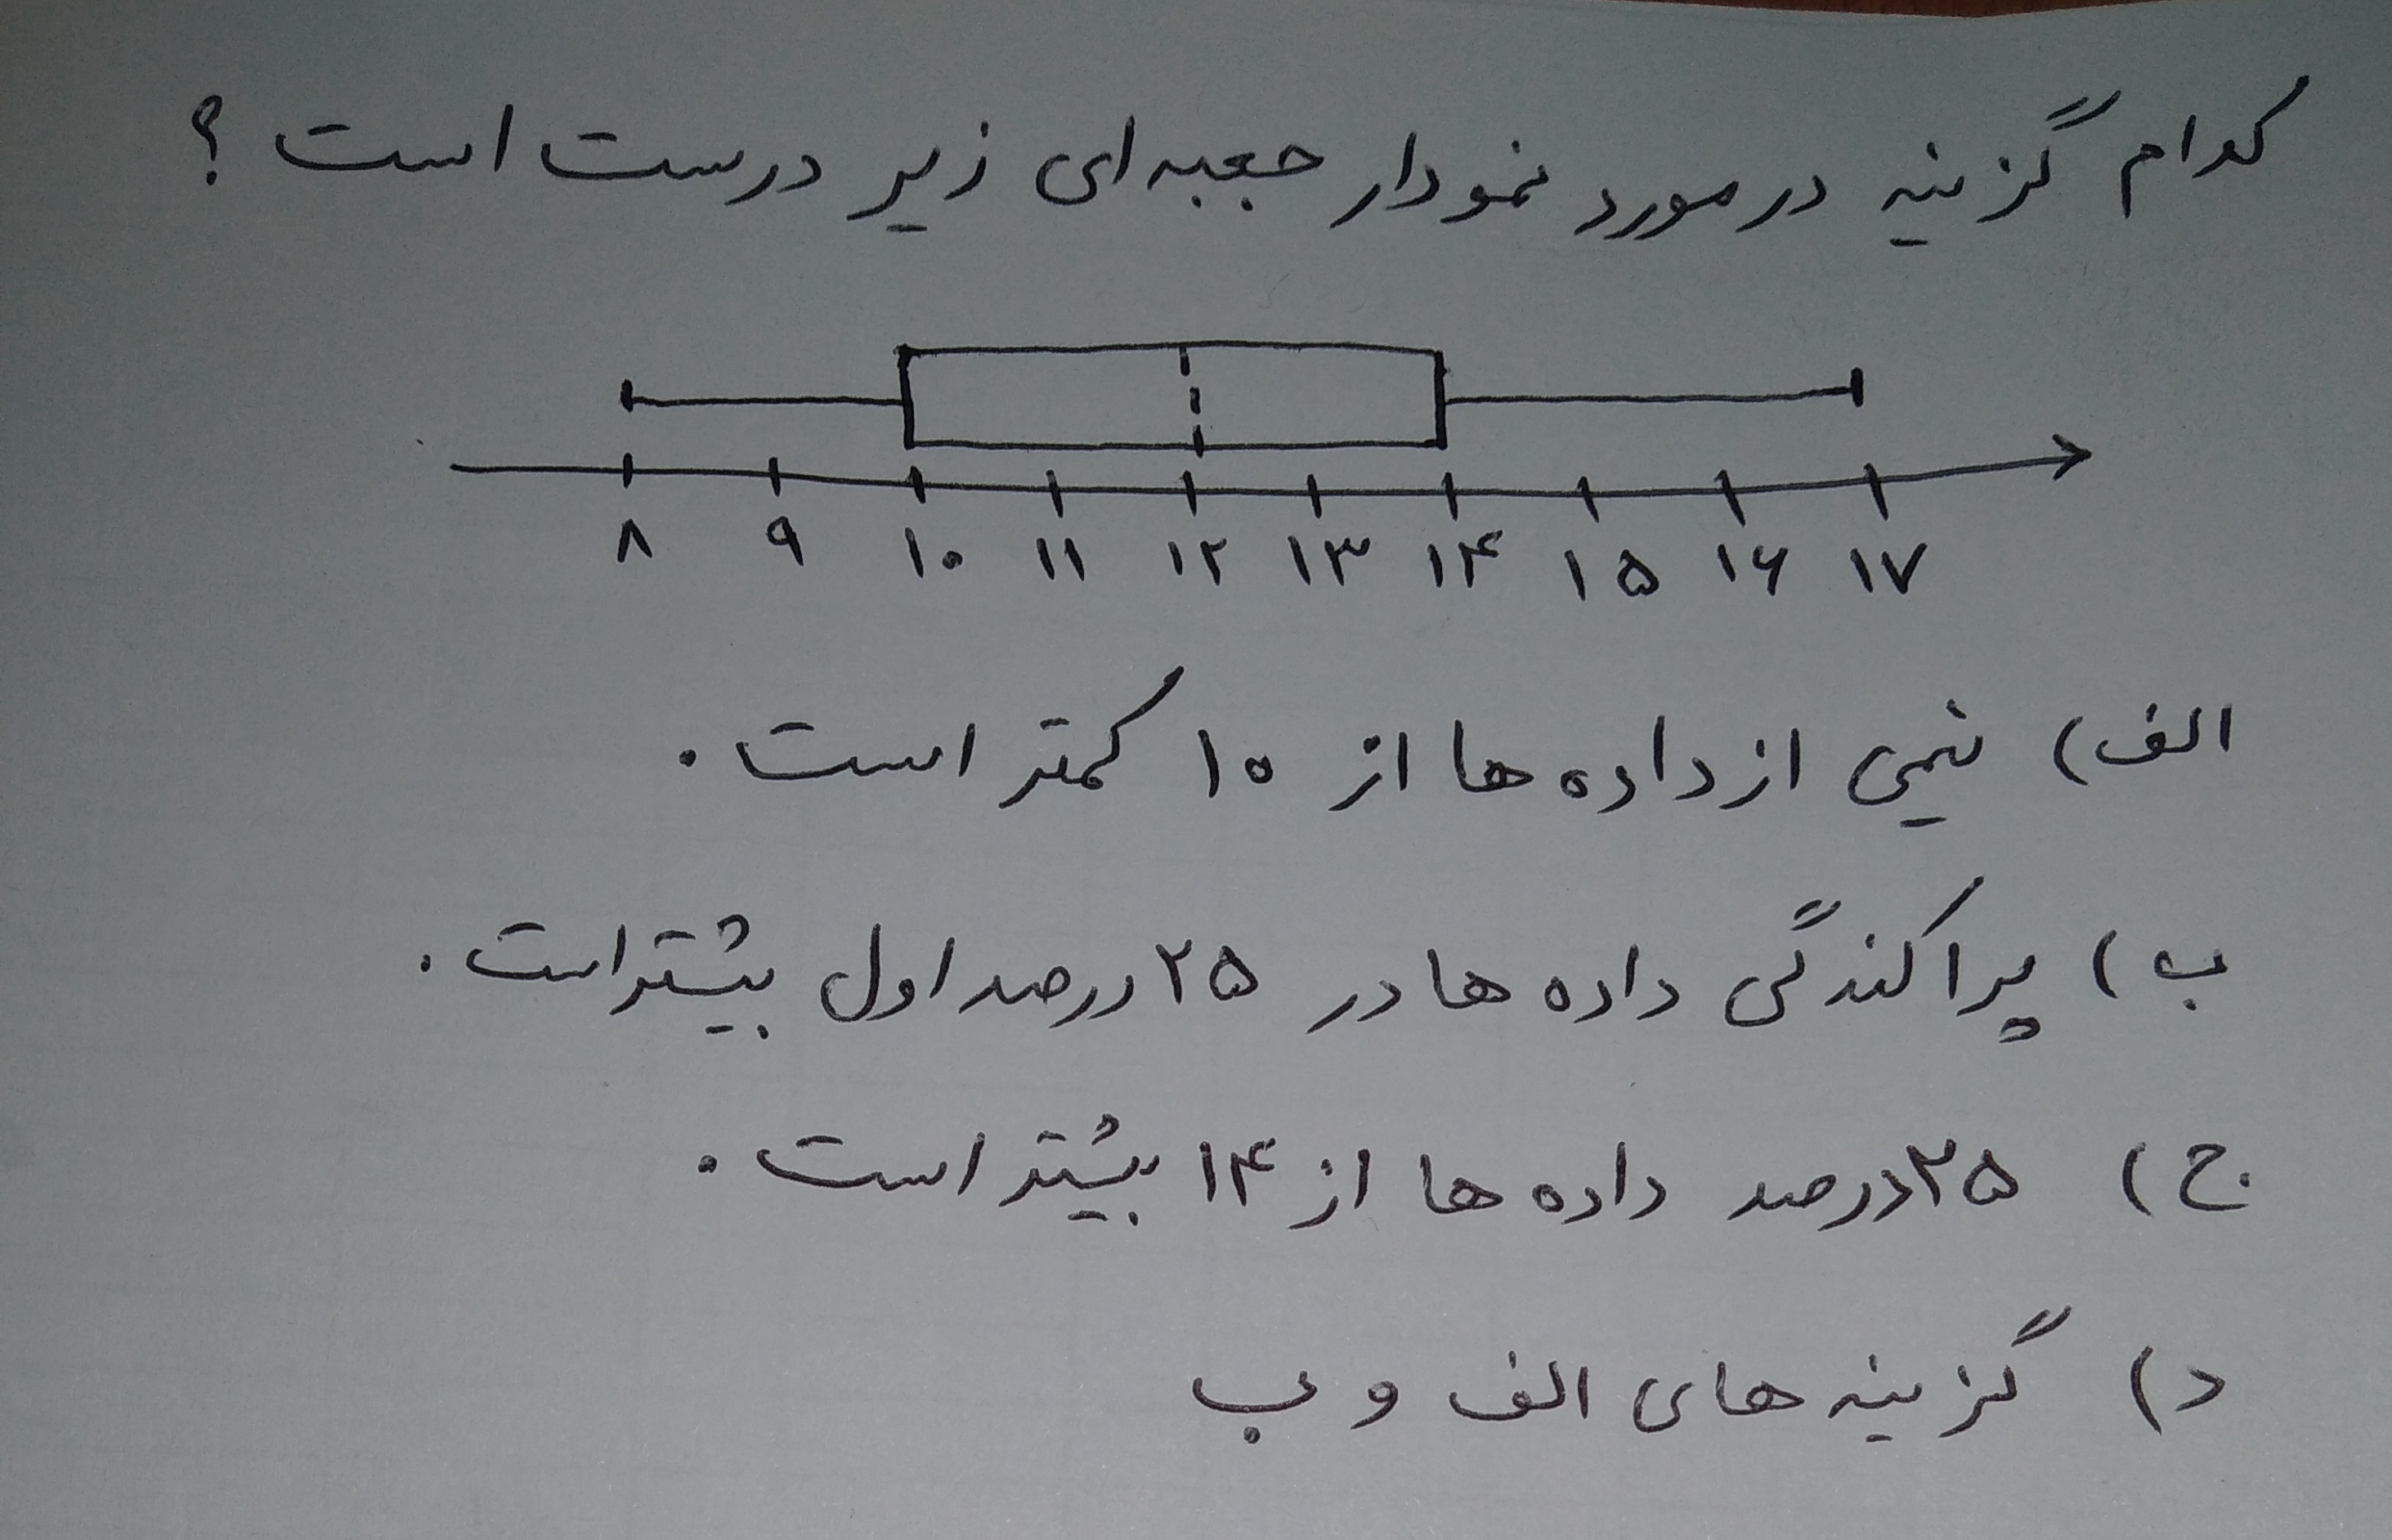 کدام گزینه در مورد نمودار جعبه‌ای زیر درست است ؟
۸ ۹ ۱۰ ۱۱ ۱۲ ۱۳ ۱۴ ۱۵ ۱۶ ۱۷
الف) نیمی از داده ها از ۱۰ کمتر است .
ب) پراکندگی داده ها در ۲۵ درصد اول بیشتر است .
ج) ۲۵ درصد داده ها از ۱۴ بیشتر است .
د) گزینه های الف و ب